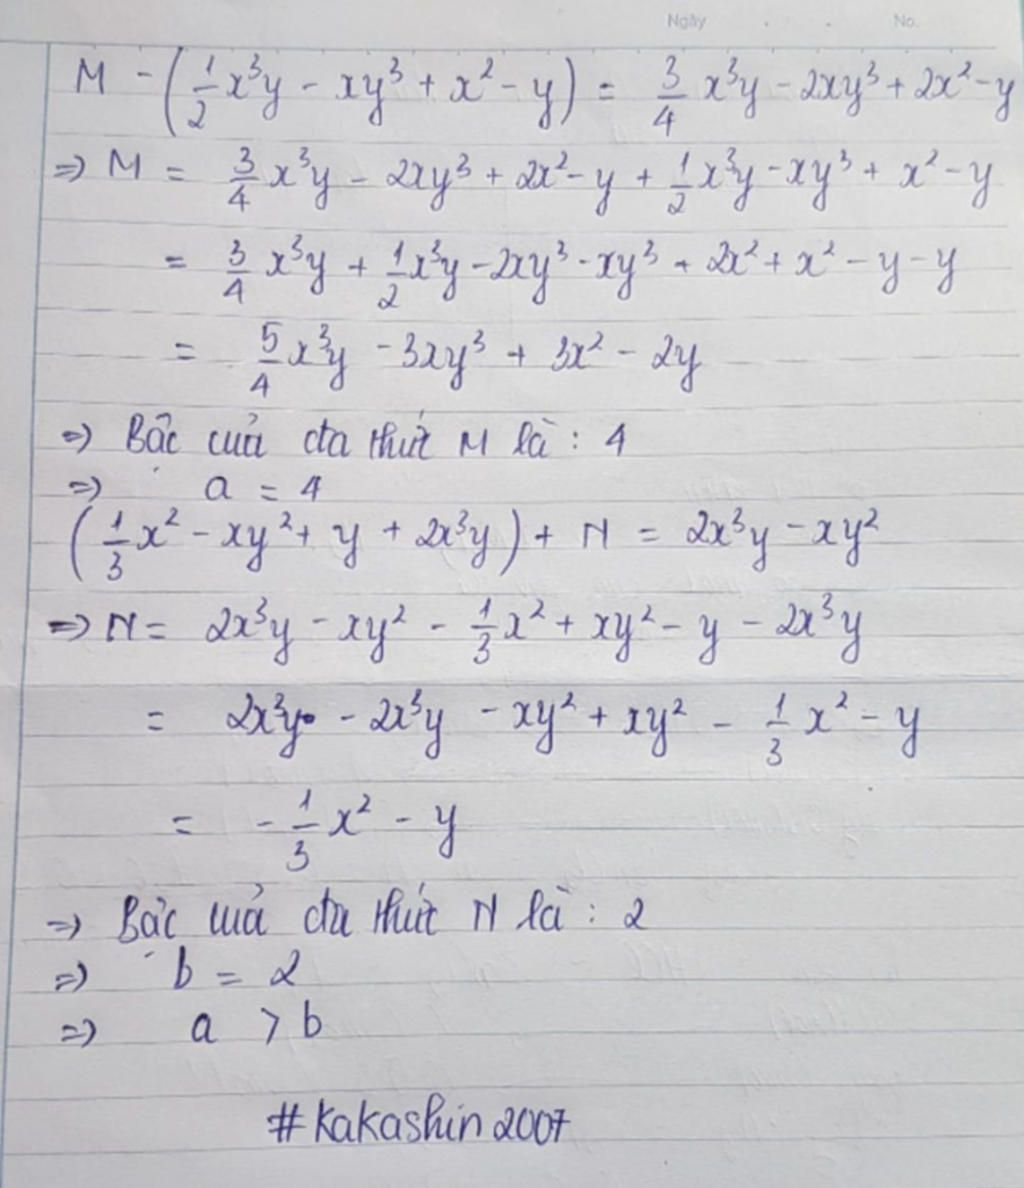 Ngày . . No.
M - (1/2 x³y - xy³ + x² - y) = 3/4 x³y - 2xy³ + 2x² - y
=> M = 3/4 x³y - 2xy³ + 2x² - y + 1/2 x³y - xy³ + x² - y
= 3/4 x³y + 1/2 x³y - 2xy³ - xy³ + 2x² + x² - y - y
= 5/4 x³y - 3xy³ + 3x² - 2y
=> Bậc của đa thức M là : 4
=> a = 4
(1/3 x² - xy² + y + 2x³y) + N = 2x³y - xy²
=> N = 2x³y - xy² - 1/3 x² + xy² - y - 2x³y
= 2x³y - 2x³y - xy² + xy² - 1/3 x² - y
= - 1/3 x² - y
=> Bậc của đa thức N là : 2
=> b = 2
=> a > b
#Kakashin2007